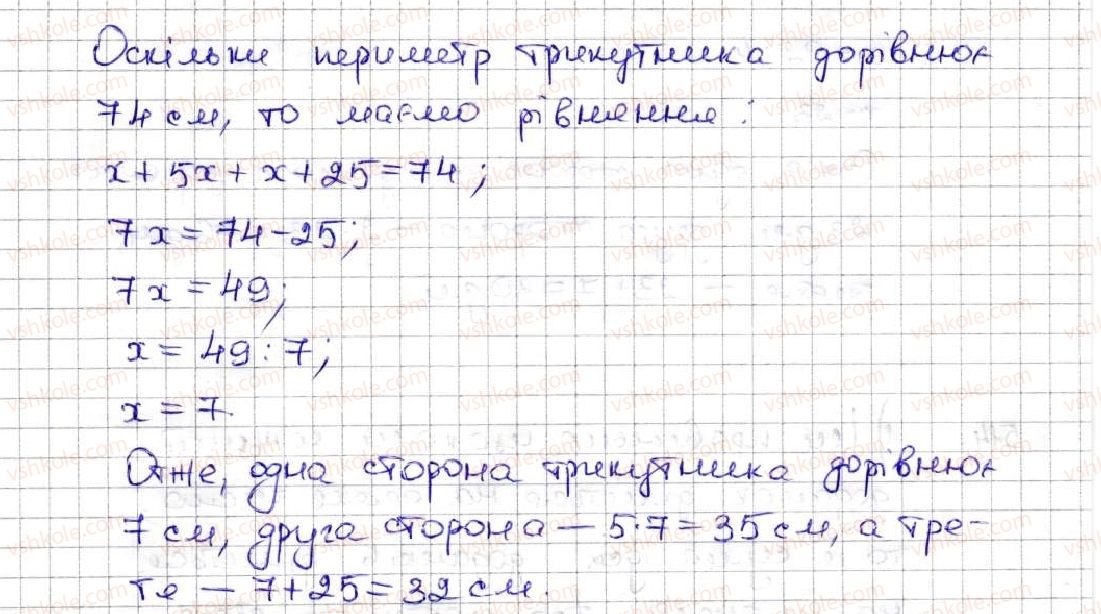 Оскільки периметр трикутника дорівнює
74 см, то маємо рівняння:
x + 5x + x + 25 = 74;
7x = 74 - 25;
7x = 49;
x = 49 : 7;
x = 7.
Отже, одна сторона трикутника дорівнює
7 см, друга сторона — 5·7 = 35 см, а тре-
тя — 7 + 25 = 32 см.